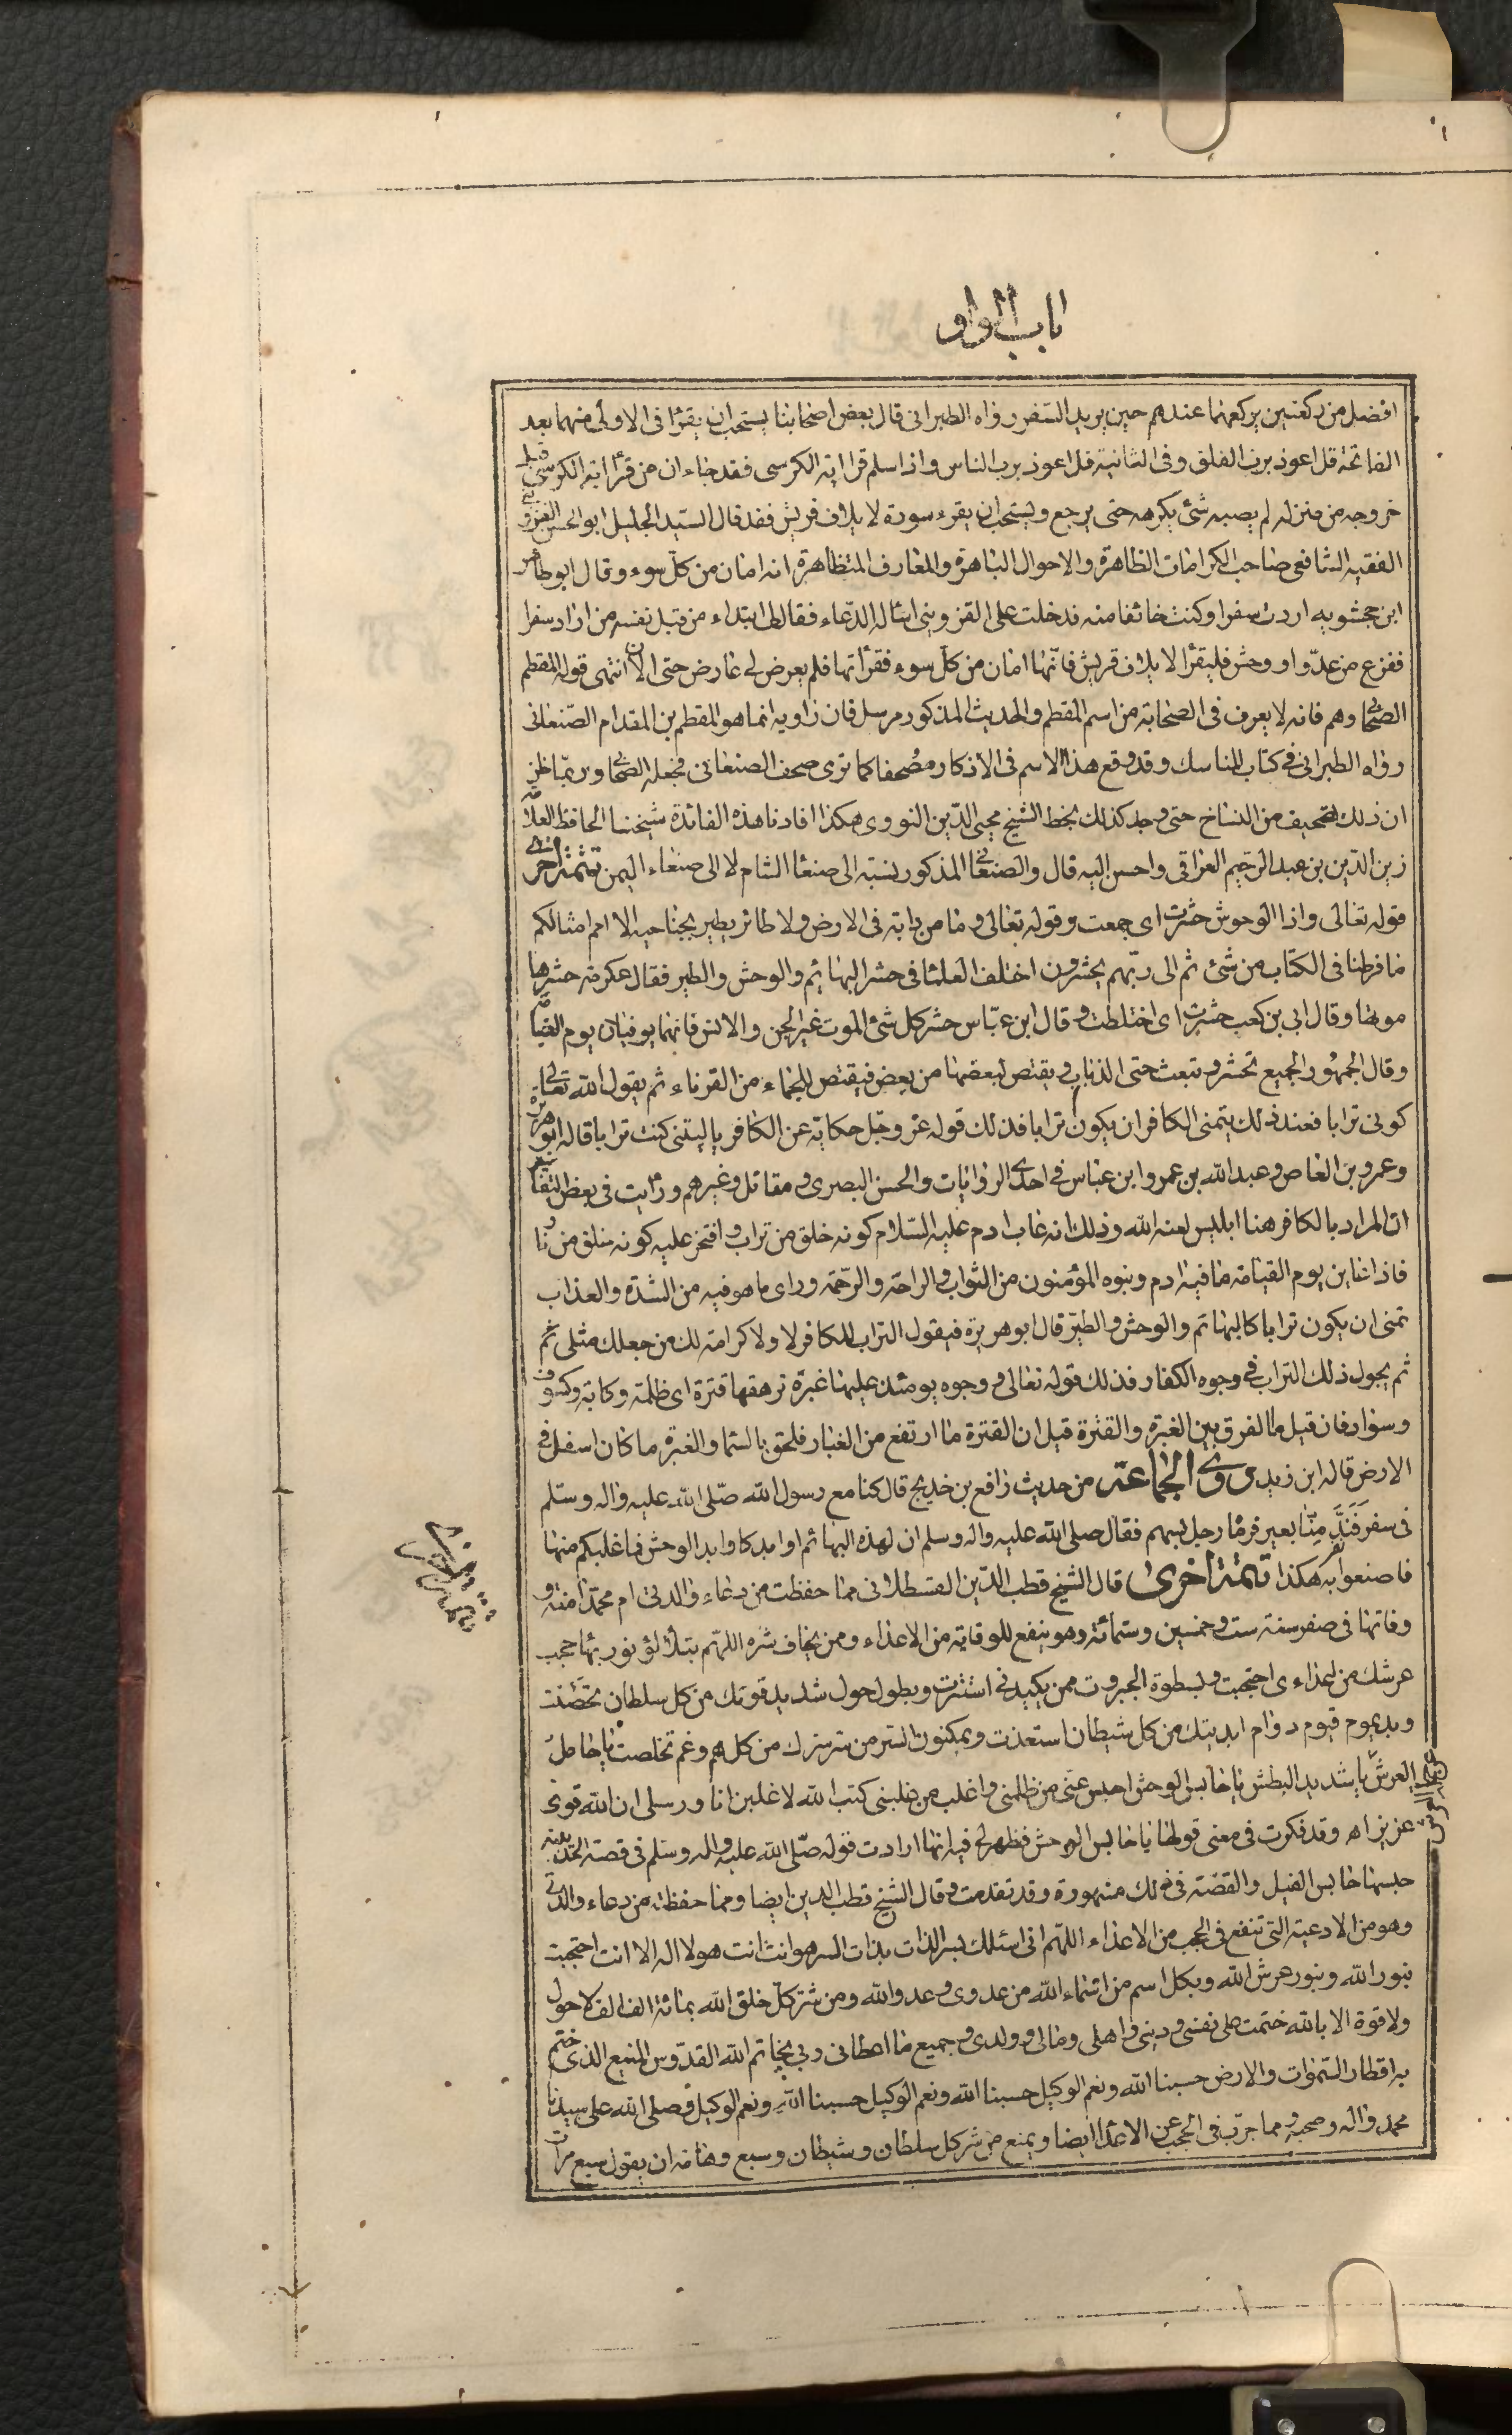 باب الواو
افضل من ركعتين يركعهما عندهم حين يريد السفر رواه الطبرانى قال بعض اصحابنا يستحب ان يقرا فى الاولى منهما بعد
الفاتحة قل اعوذ برب الفلق وفى الثانية قل اعوذ برب الناس واذا سلم قرا اية الكرسى فقد جاء ان من قرأ اية الكرسى قبل
خروجه من منزله لم يصبه شئ يكرهه حتى يرجع ويستحب ان يقرء سورة لايلاف قريش فقد قال السيد الجليل ابو الحسن القزوينى
الفقيه الشافعى صاحب الكرامات الظاهرة والاحوال الباهرة والمعارف المتظاهرة انه امان من كل سوء وقال ابو طاهر
ابن جحشويه اردت سفرا وكنت خائفا منه فدخلت على القزوينى اسئاله الدعاء فقال لى ابتداء من قبل نفسه من اراد سفرا
ففزع من عدو او وحش فليقرأ لايلاف قريش فانها امان من كل سوء فقرأتها فلم يعرض لى عارض حتى الان انتهى قوله المقطم
الصحابى وهم فانه لا يعرف فى الصحابة من اسمه المقطم والحديث المذكور مرسل فان راويه انما هو المقطم بن المقدام الصنعانى
رواه الطبرانى فى كتاب المناسك وقد وقع هذا الاسم فى الاذكار مصحفا كما ترى صحف الصنعانى فجعله الصحابى وربما ظن
ان ذلك تصحيف من النساخ حتى وجد كذلك بخط الشيخ محيى الدين النووى هكذا افادنا هذه الفائدة شيخنا الحافظ العلامة
زين الدين بن عبد الرحيم العراقى واحسن اليه قال والصنعانى المذكور نسبة الى صنعا الشام لا الى صنعاء اليمن تتمة اخرى
قوله تعالى واذا الوحوش حشرت اى جمعت وقوله تعالى وما من دابة فى الارض ولا طائر يطير بجناحيه الا امم امثالكم
ما فرطنا فى الكتاب من شئ ثم الى ربهم يحشرون اختلف العلما فى حشر البهائم والوحش والطير فقال عكرمة حشرها
موتها وقال ابى بن كعب حشرت اى اختلطت وقال ابن عباس حشر كل شئ الموت غير الجن والانس فانهما يوفيان يوم القيامة
وقال الجمهور الجميع تحشر وتبعث حتى الذباب ويقتص لبعضها من بعض فيقتص للجماء من القرناء ثم يقول الله تعالى
كونى ترابا فعند ذلك يتمنى الكافر ان يكون ترابا فذلك قوله عز وجل حكاية عن الكافر ياليتنى كنت ترابا قاله ابو هريرة
وعمرو بن العاص وعبد الله بن عمر وابن عباس فى احدى الروايات والحسن البصرى ومقاتل وغيرهم ورأيت فى بعض التفاسير
ان المراد بالكافر هنا ابليس لعنه الله وذلك انه عاب ادم عليه السلام كونه خلق من تراب وافتخر عليه كونه خلق من نار
فاذا عاين يوم القيامة ما فيه ادم وبنوه المؤمنون من الثواب والراحة والرحمة وراى ما هو فيه من الشدة والعذاب
تمنى ان يكون ترابا كالبهائم والوحش والطير قال ابو هريرة فيقول التراب للكافر لا ولا كرامة لك من جعلك مثلى ثم
ثم يحول ذلك التراب فى وجوه الكفار فذلك قوله تعالى ووجوه يومئذ عليها غبرة ترهقها قترة اى ظلمة وكابة وكسوف
وسواد فان قيل ما الفرق بين الغبرة والقترة قيل ان القترة ما ارتفع من الغبار فلحق بالسما والغبرة ما كان اسفل فى
الارض قاله ابن زيد روى الجماعة من حديث رافع بن خديج قال كنا مع رسول الله صلى الله عليه واله وسلم
فى سفر فَنَدَّ مِنّا بعير فرماه رجل بسهم فقال صلى الله عليه واله وسلم ان لهذه البهائم اوابد كاوابد الوحش فما غلبكم منها
فاصنعوا به هكذا تتمة اخرى قال الشيخ قطب الدين القسطلانى مما حفظت من دعاء والدتى ام محمد امنة و
وفاتها فى صفر سنة ست وخمسين وستمائة وهو ينفع للوقاية من الاعداء وممن يخاف شره اللهم بتلألؤ نور بهاء حجب
عرشك من اعداءى احتجبت وبسطوة الجبروت ممن يكيدنى استترت وبطول حول شديد قوتك من كل سلطان تحصنت
وبديموم قيوم دوام ابديتك من كل شيطان استعذت وبمكنون السر من سر سرك من كل هم وغم تخلصت يا حامل
العرش يا شديد البطش يا حابس الوحش احبس عنى من ظلمنى واغلب من غلبنى كتب الله لاغلبن انا ورسلى ان الله قوى
عزيز اه وقد فكرت فى معنى قولها يا حابس الوحش فظهر لى فيه انها ارادت قوله صلى الله عليه واله وسلم فى قصة الحديبية
حبسها حابس الفيل والقصة فى ذلك مشهورة وقد تقدمت وقال الشيخ قطب الدين ايضا ومما حفظته من دعاء والدتى
وهو من الادعية التى تنفع فى الحجب من الاعداء اللهم انى اسئلك بسر الذات بذات السر هو انت انت هو لا اله الا انت احتجبت
بنور الله وبنور عرش الله وبكل اسم من اسماء الله من عدوى وعدو الله ومن شر كل خلق الله بمائة الف الف لا حول
ولا قوة الا بالله ختمت على نفسى ودينى واهلى ومالى وولدى وجميع ما اعطانى ربى بخاتم الله القدوس المنيع الذى ختم
به اقطار السموات والارض حسبنا الله ونعم الوكيل حسبنا الله ونعم الوكيل حسبنا الله ونعم الوكيل وصلى الله على سيدنا
محمد واله وصحبه ومما جرب فى الحجب عن الاعدا ايضا ويمنع من شر كل سلطان وشيطان وسبع وهامة ان يقول سبع مرات